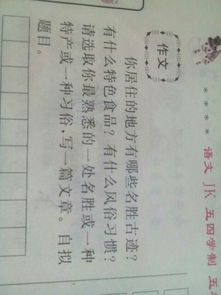 **** 语文 JK 五四学制 五
作文
你居住的地方有哪些名胜古迹?
有什么特色食品? 有什么风俗习惯?
请选取你最熟悉的一处名胜或一种
特产或一种习俗,写一篇文章。自拟
题目。